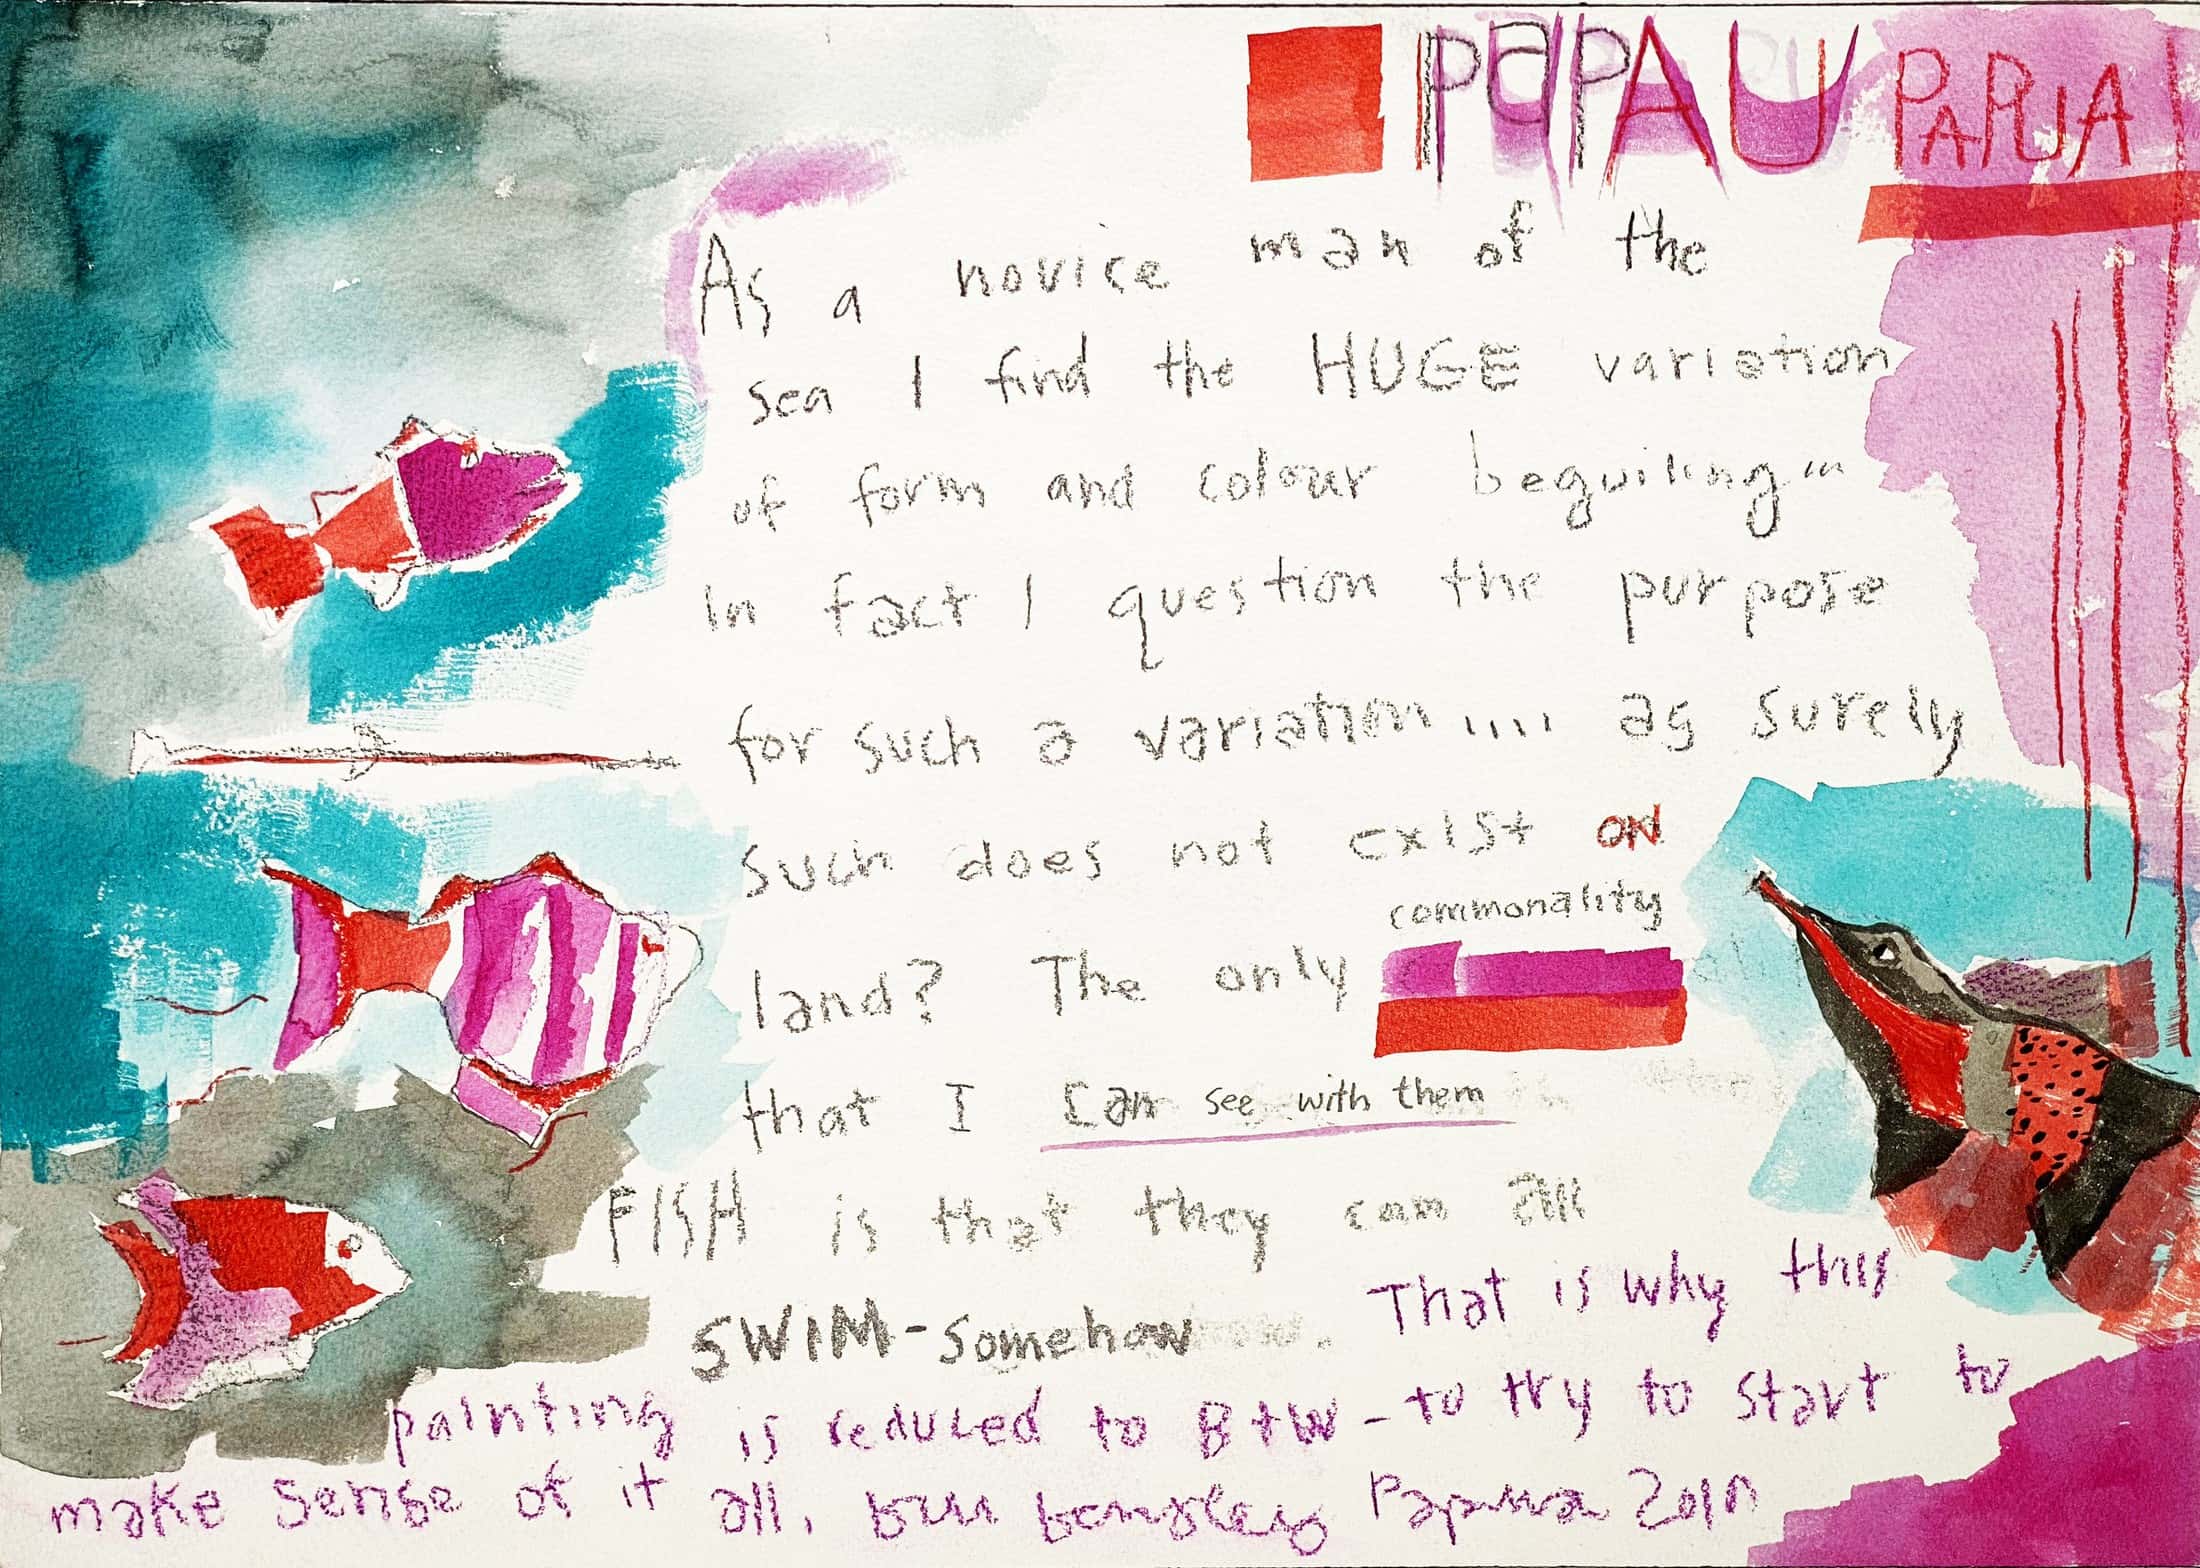 PAPAU PAPUA
As a novice man of the
sea I find the HUGE variation
of form and colour beguiling ...
In fact I question the purpose
for such a variation .... as surely
such does not exist ON
commonality
land? The only
that I can see with them
FISH is that they can all
SWIM - somehow.
That is why this
painting is reduced to B+W - to try to start to
make sense of it all. Papua